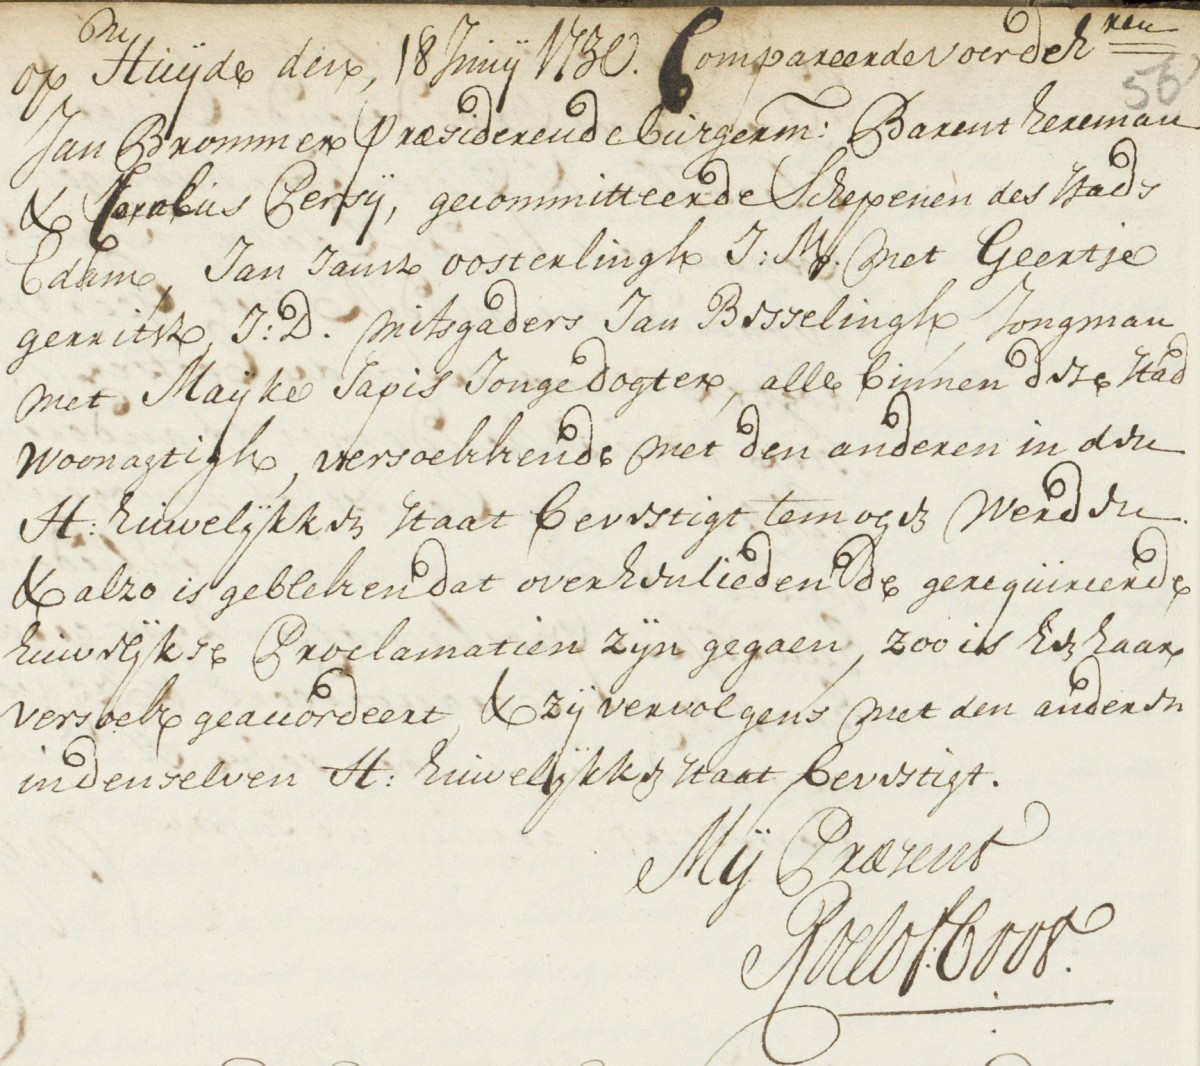 op Huijde den, 18 Junij 1730. Compareerde voor de Hren
56
Jan Brommer Præsiderende burgerm: Barent hereman
& Persij, gecommitteerde Schepenen des Stads
Edam, Jan Jansz oosterlingh J:M. met Geertje
gerrits, J:D. mitsgaders Jan Besselingh, Jongman
met Maijke Japis Jongedogter, alle binnen dese Stad
woonagtigh, versoekkende met den anderen in den
H: huwelijkken Staat bevestigt te mogen werden
& alzo is gebleken dat over henlieden de gerequireerde
huwelijkse Proclamatien zijn gegaen, zoo is hen haar
versoek geaccordeert, & zij vervolgens met den anderen
in denselven H: huwelijkken Staat bevestigt.
Mij Præsent
Roelof